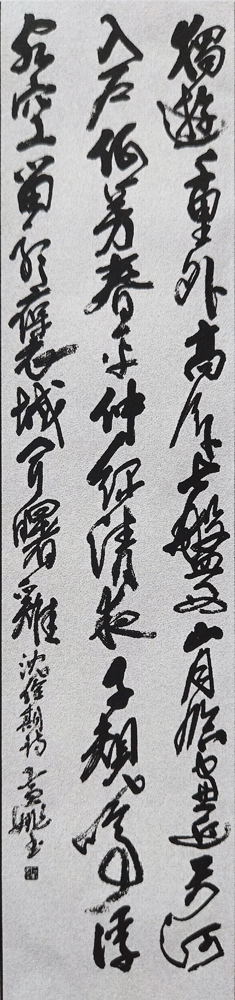 獨遊千里外高臥七盤西山月臨窗近天河
入戶低芳春平仲綠清夜子規啼浮
客空留聽褒城聞曙雞 沈佺期詩